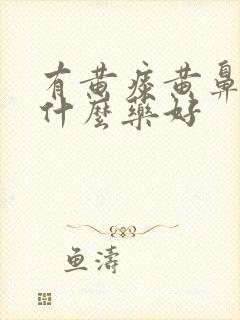 有黄痰黄鼻
什麼藥好
鱼濤